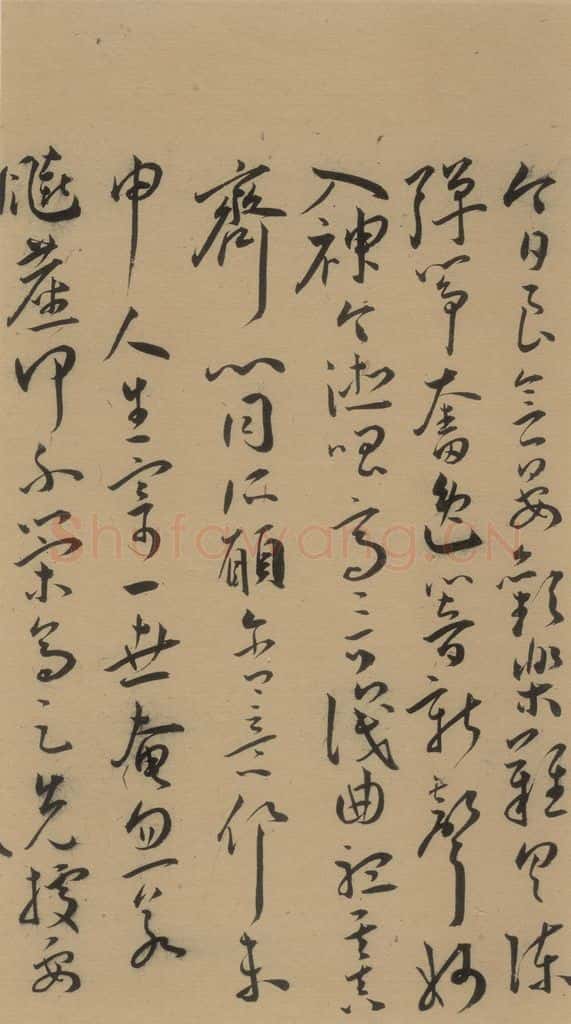 今日良會宴歡樂難具陳
彈箏奮逸響新聲妙
入神令德唱高言識曲聽其真
齊心同所願含意俱未
申人生寄一世奄忽若
飈塵何不策高足先據要
Shufawang.CN